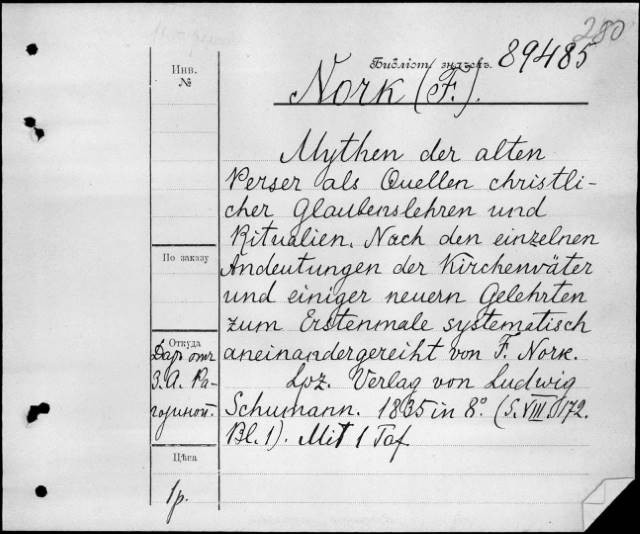 280
Библіот. знакъ. 89485
Инв.
№
Nork (F.).
Mythen der alten
Perser als Quellen christli-
cher Glaubenslehren und
Ritualien. Nach den einzelnen
По заказу
Andeutungen der Kirchenväter
und einiger neuern Gelehrten
zum Erstenmale systematisch
Откуда
Даръ отъ
З. А. Ра-
гозиной.
aneinandergereiht von F. Nork.
Lpz. Verlag von Ludwig
Schumann. 1835 in 8° (S. VIII. 172.
Bl. 1). Mit 1 Taf
Цѣна
1 р.